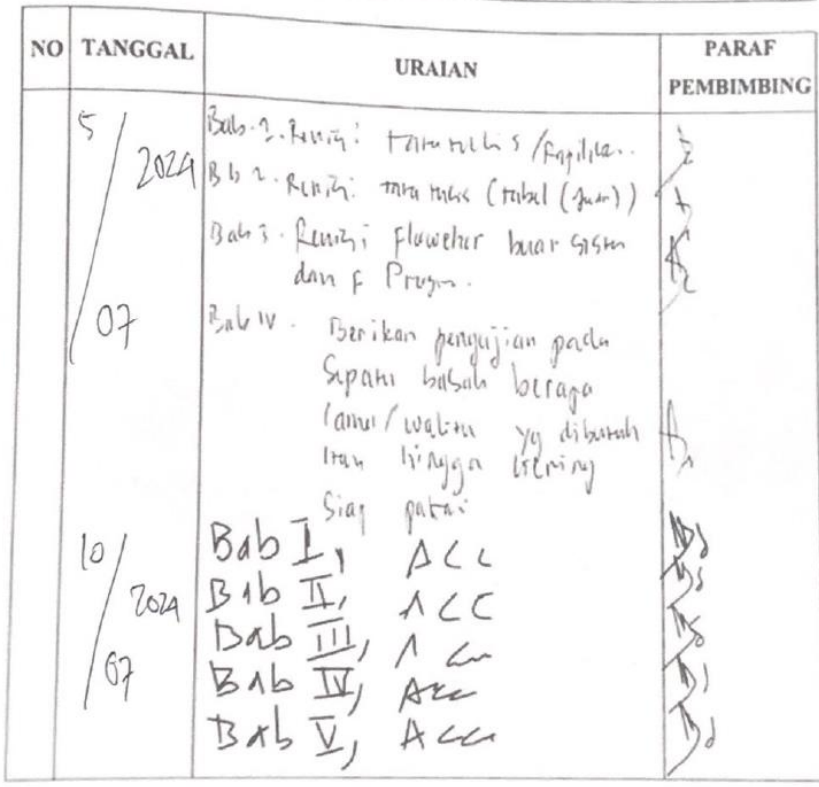 NO TANGGAL URAIAN PARAF PEMBIMBING
5/07 2024
Bab. 2. Revisi: tata tulis /
Bb 2. Revisi: tata tulis (tabel ( ))
Bab 3. Revisi flowchar buat sistem
dan Progm.
Bab IV. Berikan pengujian pada
Sepatu basah berapa
lama/waktu yg dibutuh
kan hingga kering
Siap pakai
10/07 2024
Bab I, ACC
Bab II, ACC
Bab III, Acc
Bab IV, Acc
Bab V, Acc